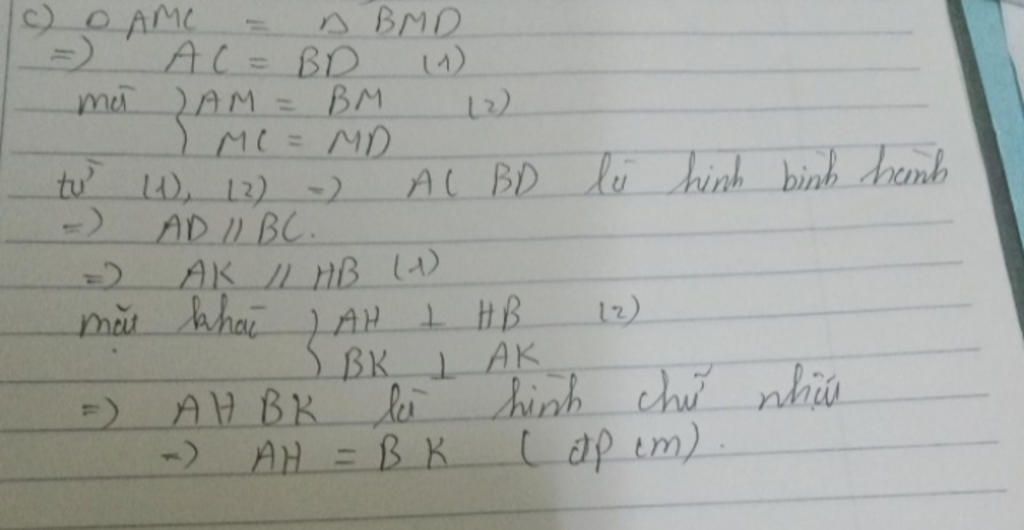 c) Δ AMC = Δ BMD
=) AC = BD (1)
mà } AM = BM (2)
} MC = MD
từ (1), (2) => AC BD là hình bình hành
=) AD // BC.
=> AK // HB (1)
mặt khác } AH ⊥ HB (2)
} BK ⊥ AK
=> AH BK là hình chữ nhật
=> AH = BK (đpcm).